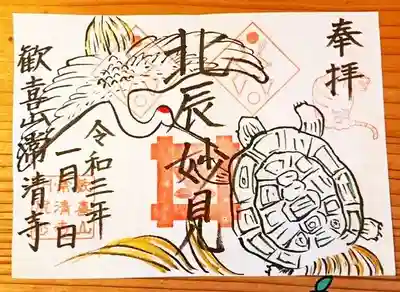 奉拝
北辰妙見
令和三年
一月一日
歓喜山常清寺